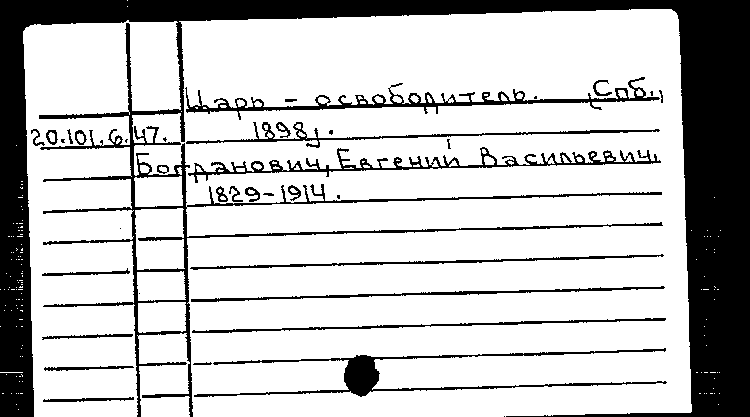 Царь - освободитель. [Спб.,
20.101.6.47. 1898].
Богданович, Евгений Васильевич,
1829-1914.